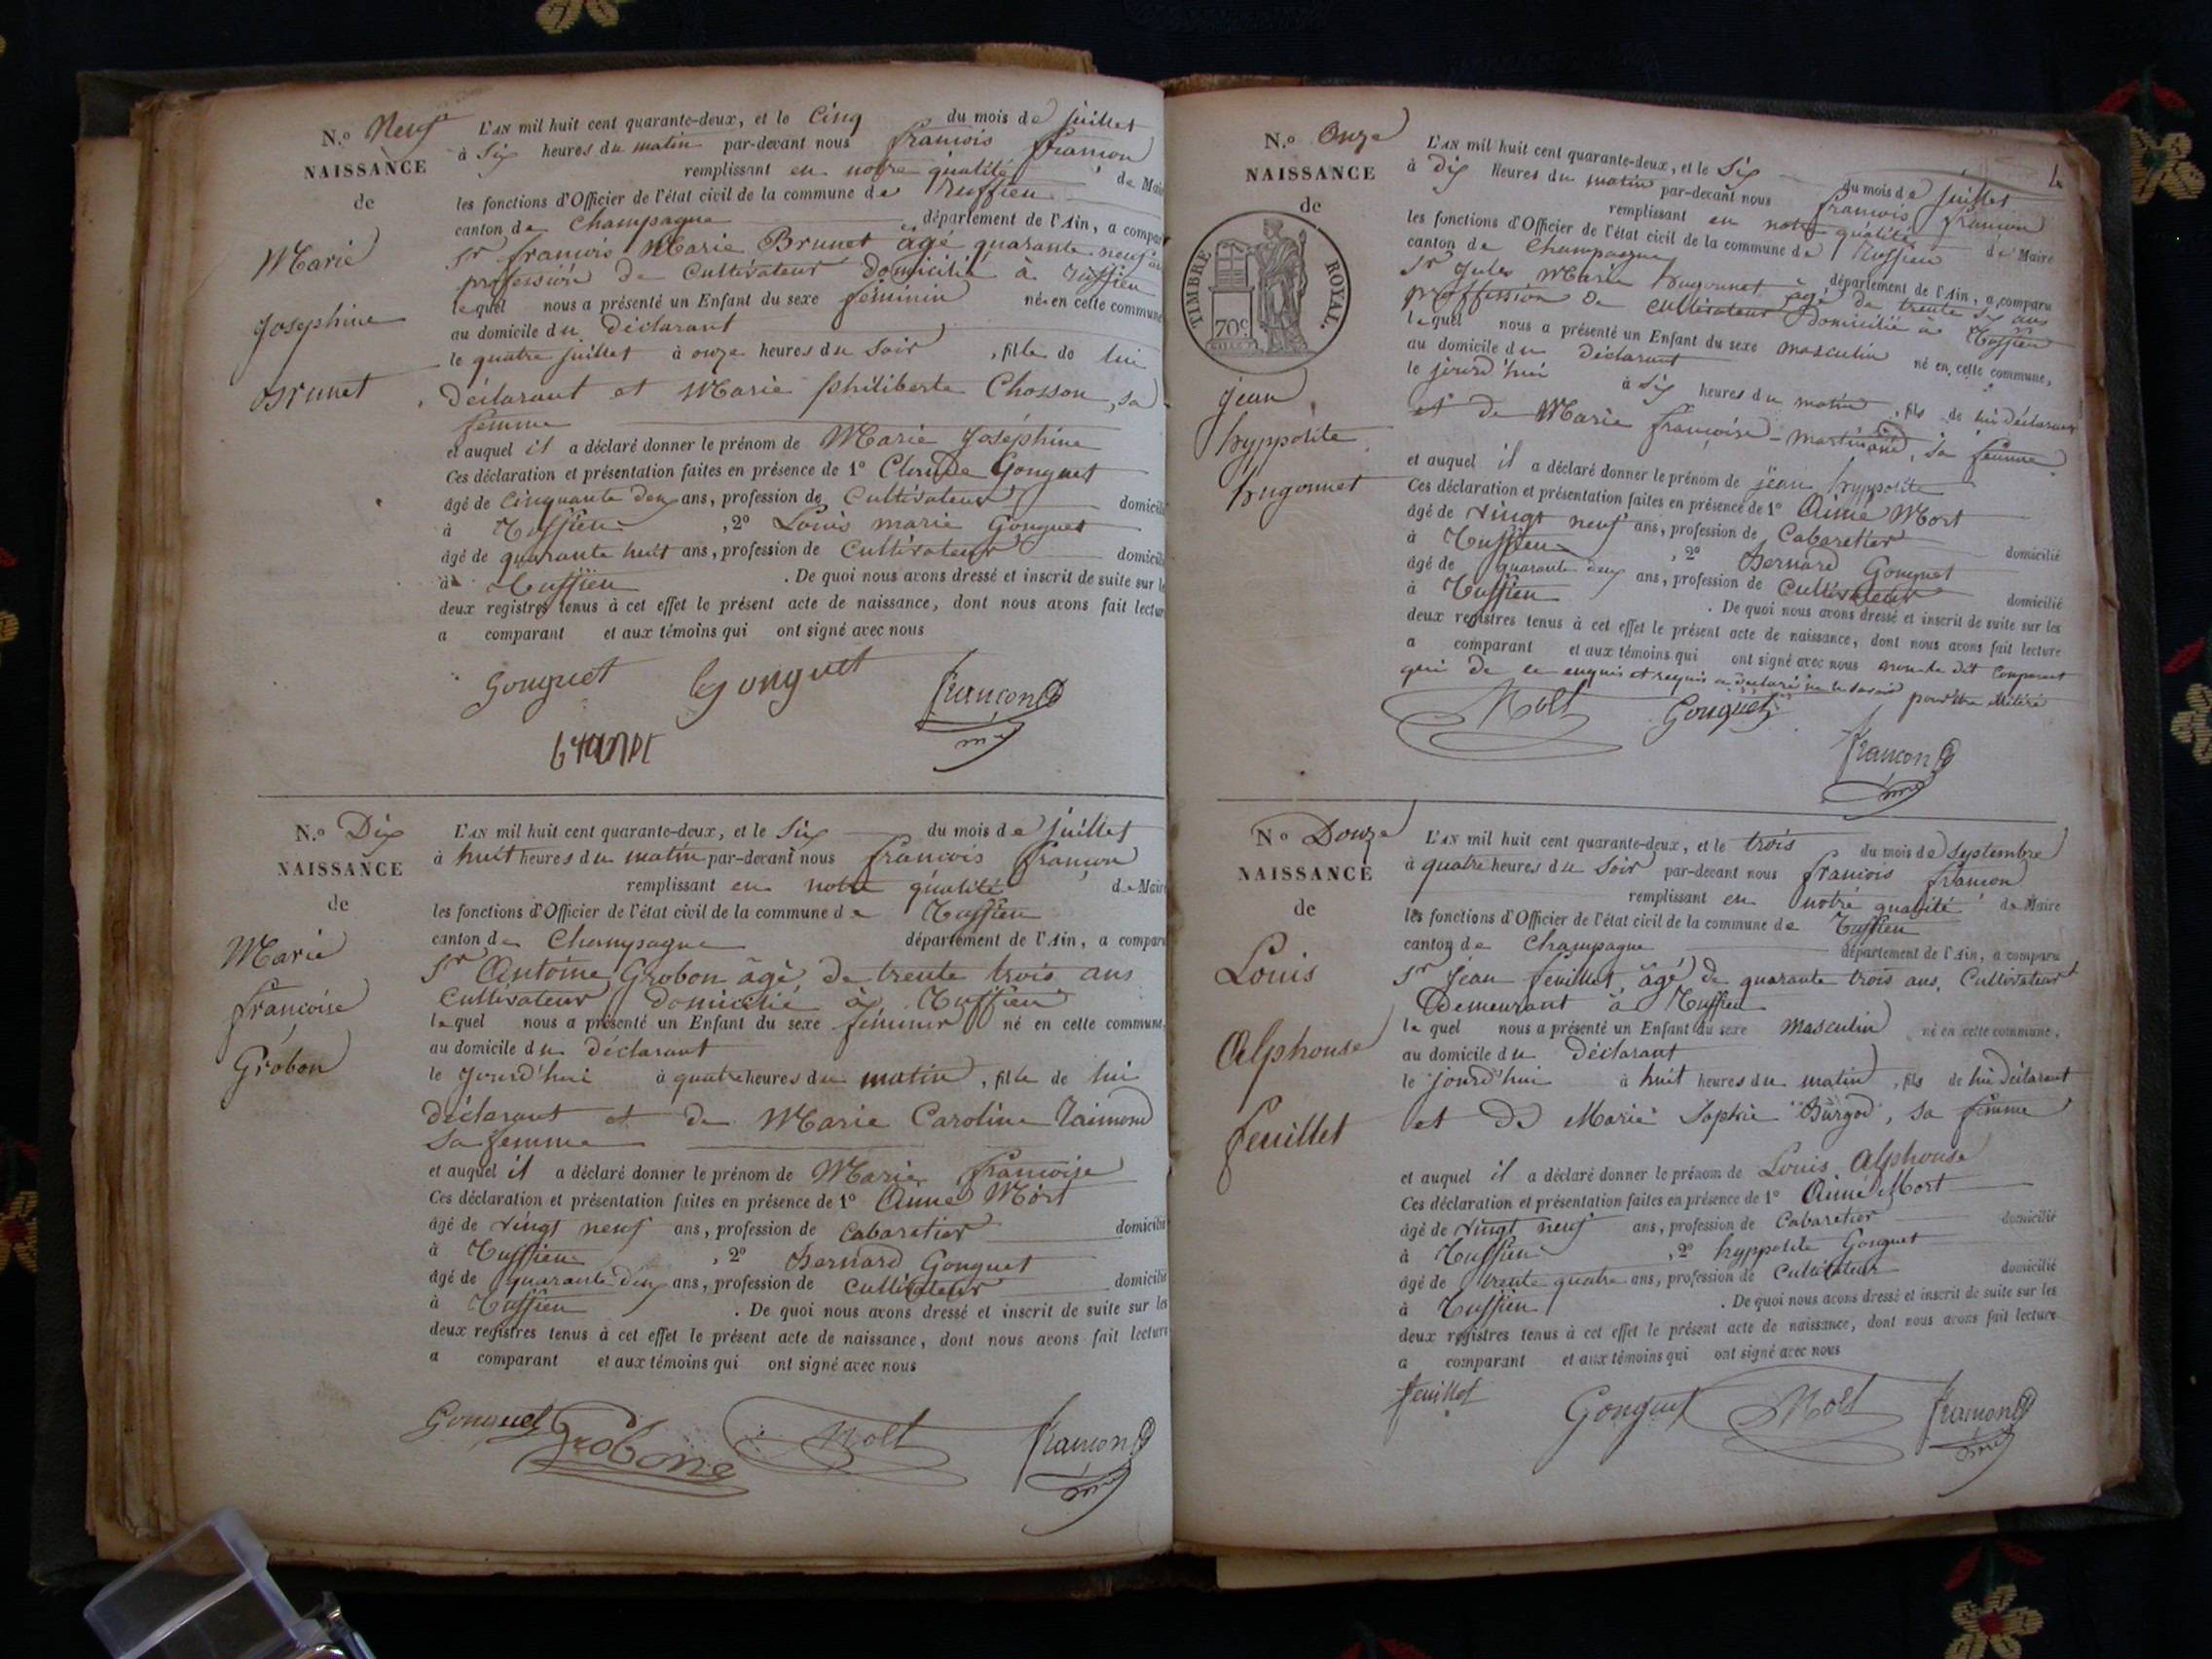 N.o Neuf
NAISSANCE
de
Marie
Josephine
Brunet
L'AN mil huit cent quarante-deux, et le Cinq du mois de juillet
à Six heures du matin par-devant nous françois françon
remplissant en notre qualité de Mai
les fonctions d'Officier de l'état civil de la commune de Ruffieu
canton de Champagne département de l'Ain, a compar
Sr françois Marie Brunet âgé quarante neuf an
profession de Cultivateur domicilié à Ruffieu
lequel nous a présenté un Enfant du sexe féminin née en cette commune
au domicile du Déclarant
le quatre juillet à onze heures du Soir , fille de lui
Déclarant et Marie philiberte Chosson, sa
femme
et auquel il a déclaré donner le prénom de Marie Joséphine
Ces déclaration et présentation faites en présence de 1o Claude Gonguet
âgé de Cinquante deux ans, profession de Cultivateur domicili
à Ruffieu , 2o Louis marie Gonguet
âgé de quarante huit ans, profession de Cultivateur domicili
à Ruffieu . De quoi nous avons dressé et inscrit de suite sur le
deux registres tenus à cet effet le présent acte de naissance, dont nous avons fait lectur
a comparant et aux témoins qui ont signé avec nous
Gonguet Gonguet françon
brunet
N.o Dix
NAISSANCE
de
Marie
françoise
Grobon
L'AN mil huit cent quarante-deux, et le Six du mois de juillet
à huit heures du matin par-devant nous françois françon
remplissant en notre qualité de Maire
les fonctions d'Officier de l'état civil de la commune de Ruffieu
canton de Champagne département de l'Ain, a comparu
Sr Antoine Grobon âgé de trente trois ans
Cultivateur domicilié à Ruffieu
lequel nous a présenté un Enfant du sexe féminin né en cette commune,
au domicile du déclarant
le Jourd'hui à quatre heures du matin , fille de lui
déclarant et de Marie Caroline Raimond
Sa femme
et auquel il a déclaré donner le prénom de Marie françoise
Ces déclaration et présentation faites en présence de 1o Aimé Mort
âgé de vingt neuf ans, profession de Cabaretier domicilié
à Ruffieu , 2o Bernard Gonguet
âgé de quarante deux ans, profession de Cultivateur domicilié
à Ruffieu . De quoi nous avons dressé et inscrit de suite sur les
deux registres tenus à cet effet le présent acte de naissance, dont nous avons fait lecture
a comparant et aux témoins qui ont signé avec nous
Gonguet Grobon Mort françon
4
N.o Onze
NAISSANCE
de
TIMBRE ROYAL.
70c
jean
hyppolite
hugonnet
L'AN mil huit cent quarante-deux, et le Six du mois de juillet
à dix heures du matin par-devant nous françois françon
remplissant en notre qualité de Maire
les fonctions d'Officier de l'état civil de la commune de Ruffieu
canton de Champagne département de l'Ain, a comparu
Sr Jules Marie hugonnet âgé de trente six ans
proffession de cultivateur domicilié à Ruffieu
lequel nous a présenté un Enfant du sexe masculin né en cette commune,
au domicile du Déclarant
le jourd'hui à Six heures du matin , fils de lui déclarant
et de Marie françoise martinand, sa femme
et auquel il a déclaré donner le prénom de jean hyppolite
Ces déclaration et présentation faites en présence de 1o Aimé Mort
âgé de vingt neuf ans, profession de Cabaretier domicilié
à Ruffieu , 2o Bernard Gonguet
âgé de quarante deux ans, profession de Cultivateur domicilié
à Ruffieu . De quoi nous avons dressé et inscrit de suite sur les
deux registres tenus à cet effet le présent acte de naissance, dont nous avons fait lecture
a comparant et aux témoins qui ont signé avec nous non le dit Comparant
qui de ce enquis et requis a déclaré ne le savoir pour être illitéré
Mort Gonguet
françon
No Douze
NAISSANCE
de
Louis
Alphonse
feuillet
L'AN mil huit cent quarante-deux, et le trois du mois de Septembre
à quatre heures du Soir par-devant nous françois françon
remplissant en notre qualité de Maire
les fonctions d'Officier de l'état civil de la commune de Ruffieu
canton de Champagne département de l'Ain, a comparu
Sr Jean feuillet, âgé de quarante trois ans, Cultivateur
Demeurant à Ruffieu
le quel nous a présenté un Enfant du sexe Masculin né en cette commune.
au domicile du Déclarant
le jourd'hui à huit heures du matin , fils de lui Déclarant
et De Marie Sophie Burgod, sa femme
et auquel il a déclaré donner le prénom de Louis Alphonse
Ces déclaration et présentation faites en présence de 1o Aimé Mort
âgé de vingt neuf ans, profession de Cabaretier domicilié
à Ruffieu , 2o hyppolite Gonguet
âgé de trente quatre ans, profession de Cultivateur domicilié
à Ruffieu . De quoi nous avons dressé et inscrit de suite sur les
deux registres tenus à cet effet le présent acte de naissance, dont nous avons fait lecture
a comparant et aux témoins qui ont signé avec nous
feuillet Gonguet Mort françon